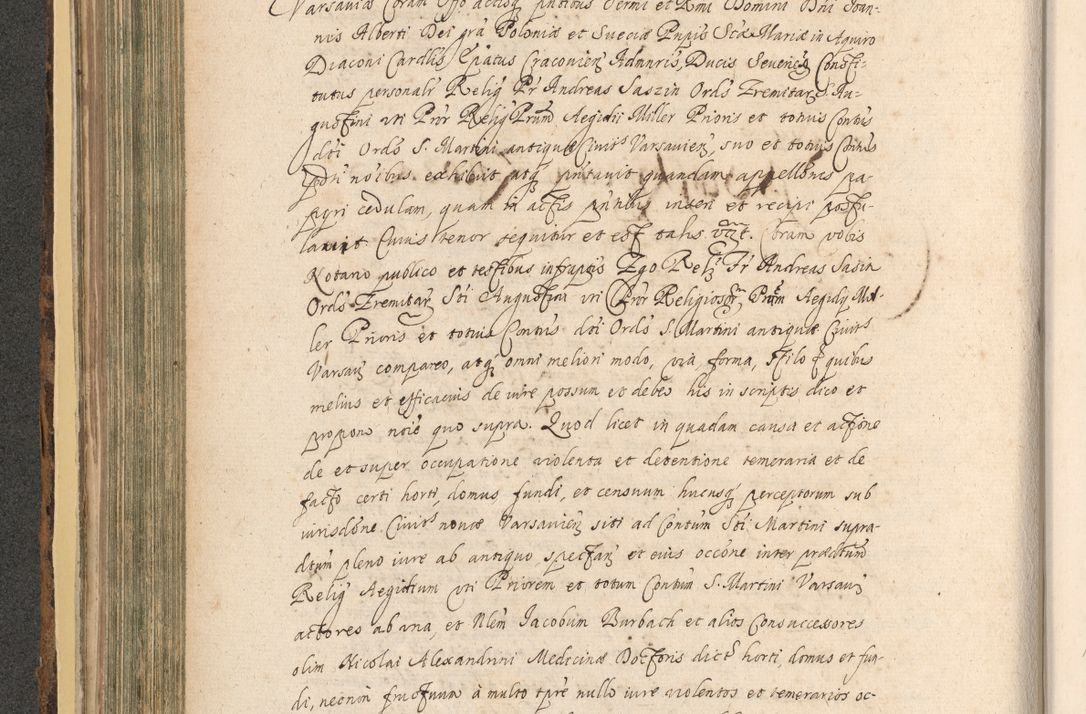 Varsaviæ Coram Offo actisq́ pntibus Sermi et Rmi Domini Dni Joan-
nis Alberti Dei grã Poloniæ et Sueciæ Pnpis Stæ Mariæ in Aquiro
Diaconi Cardlis Epatus Cracovieñ Admnris, Ducis Severieñ Consti-
tutus personalr Relig Pr Andreas Saszin Ords Eremitar S. Au-
gustini uti Prór Relig Prum Aegidii Miller Prioris et totius Contus
dti Ords S. Martini antiquæ Civits Varsavieñ, suo et totius Contus
pdti noibus exhibuit atq́ pntavit quandam appellonis pa-
pyri cedulam, quam in actis pntibus inseri et recipi postu-
lavit Cuius tenor sequitur et est talis. Coram vobis
Notario publico et testibus infraptis Ego Relig Fr Andreas Sasin
Ords Eremitar Sti Augustini uti Prór Religiosor Prum Aegidy Mil-
ler Prioris et totius Contus dti Ords S. Martini antiquæ Civits
Varsav compareo, atq́ omni meliori modo, via, forma, stilo & quibus
melius et efficacius de iure possum et debeo his in scriptis dico et
propono noie quo supra. Quod licet in quadam causa et actione
de et super occupatione violenta et detentione temeraria et de
facto certi horti, domus, fundi, et censuum hucusq́ perceptorum sub
iurisdone Civits novæ Varsavieñ siti ad Contum Sti Martini supra-
dtum pleno iure ab antiquo spectañ et eius occone inter prædictum
Relig Aegidium uti Priorem et totum Contum S. Martini Varsav
actores ab una, et Nlem Jacobum Burbach et alios Consuccessores
olim Nicolai Alexandrini Medicinæ Doctoris dict horti, domus et fun-
di, necnon fructuum à multo tpre nullo iure violentos et temerarios oc-